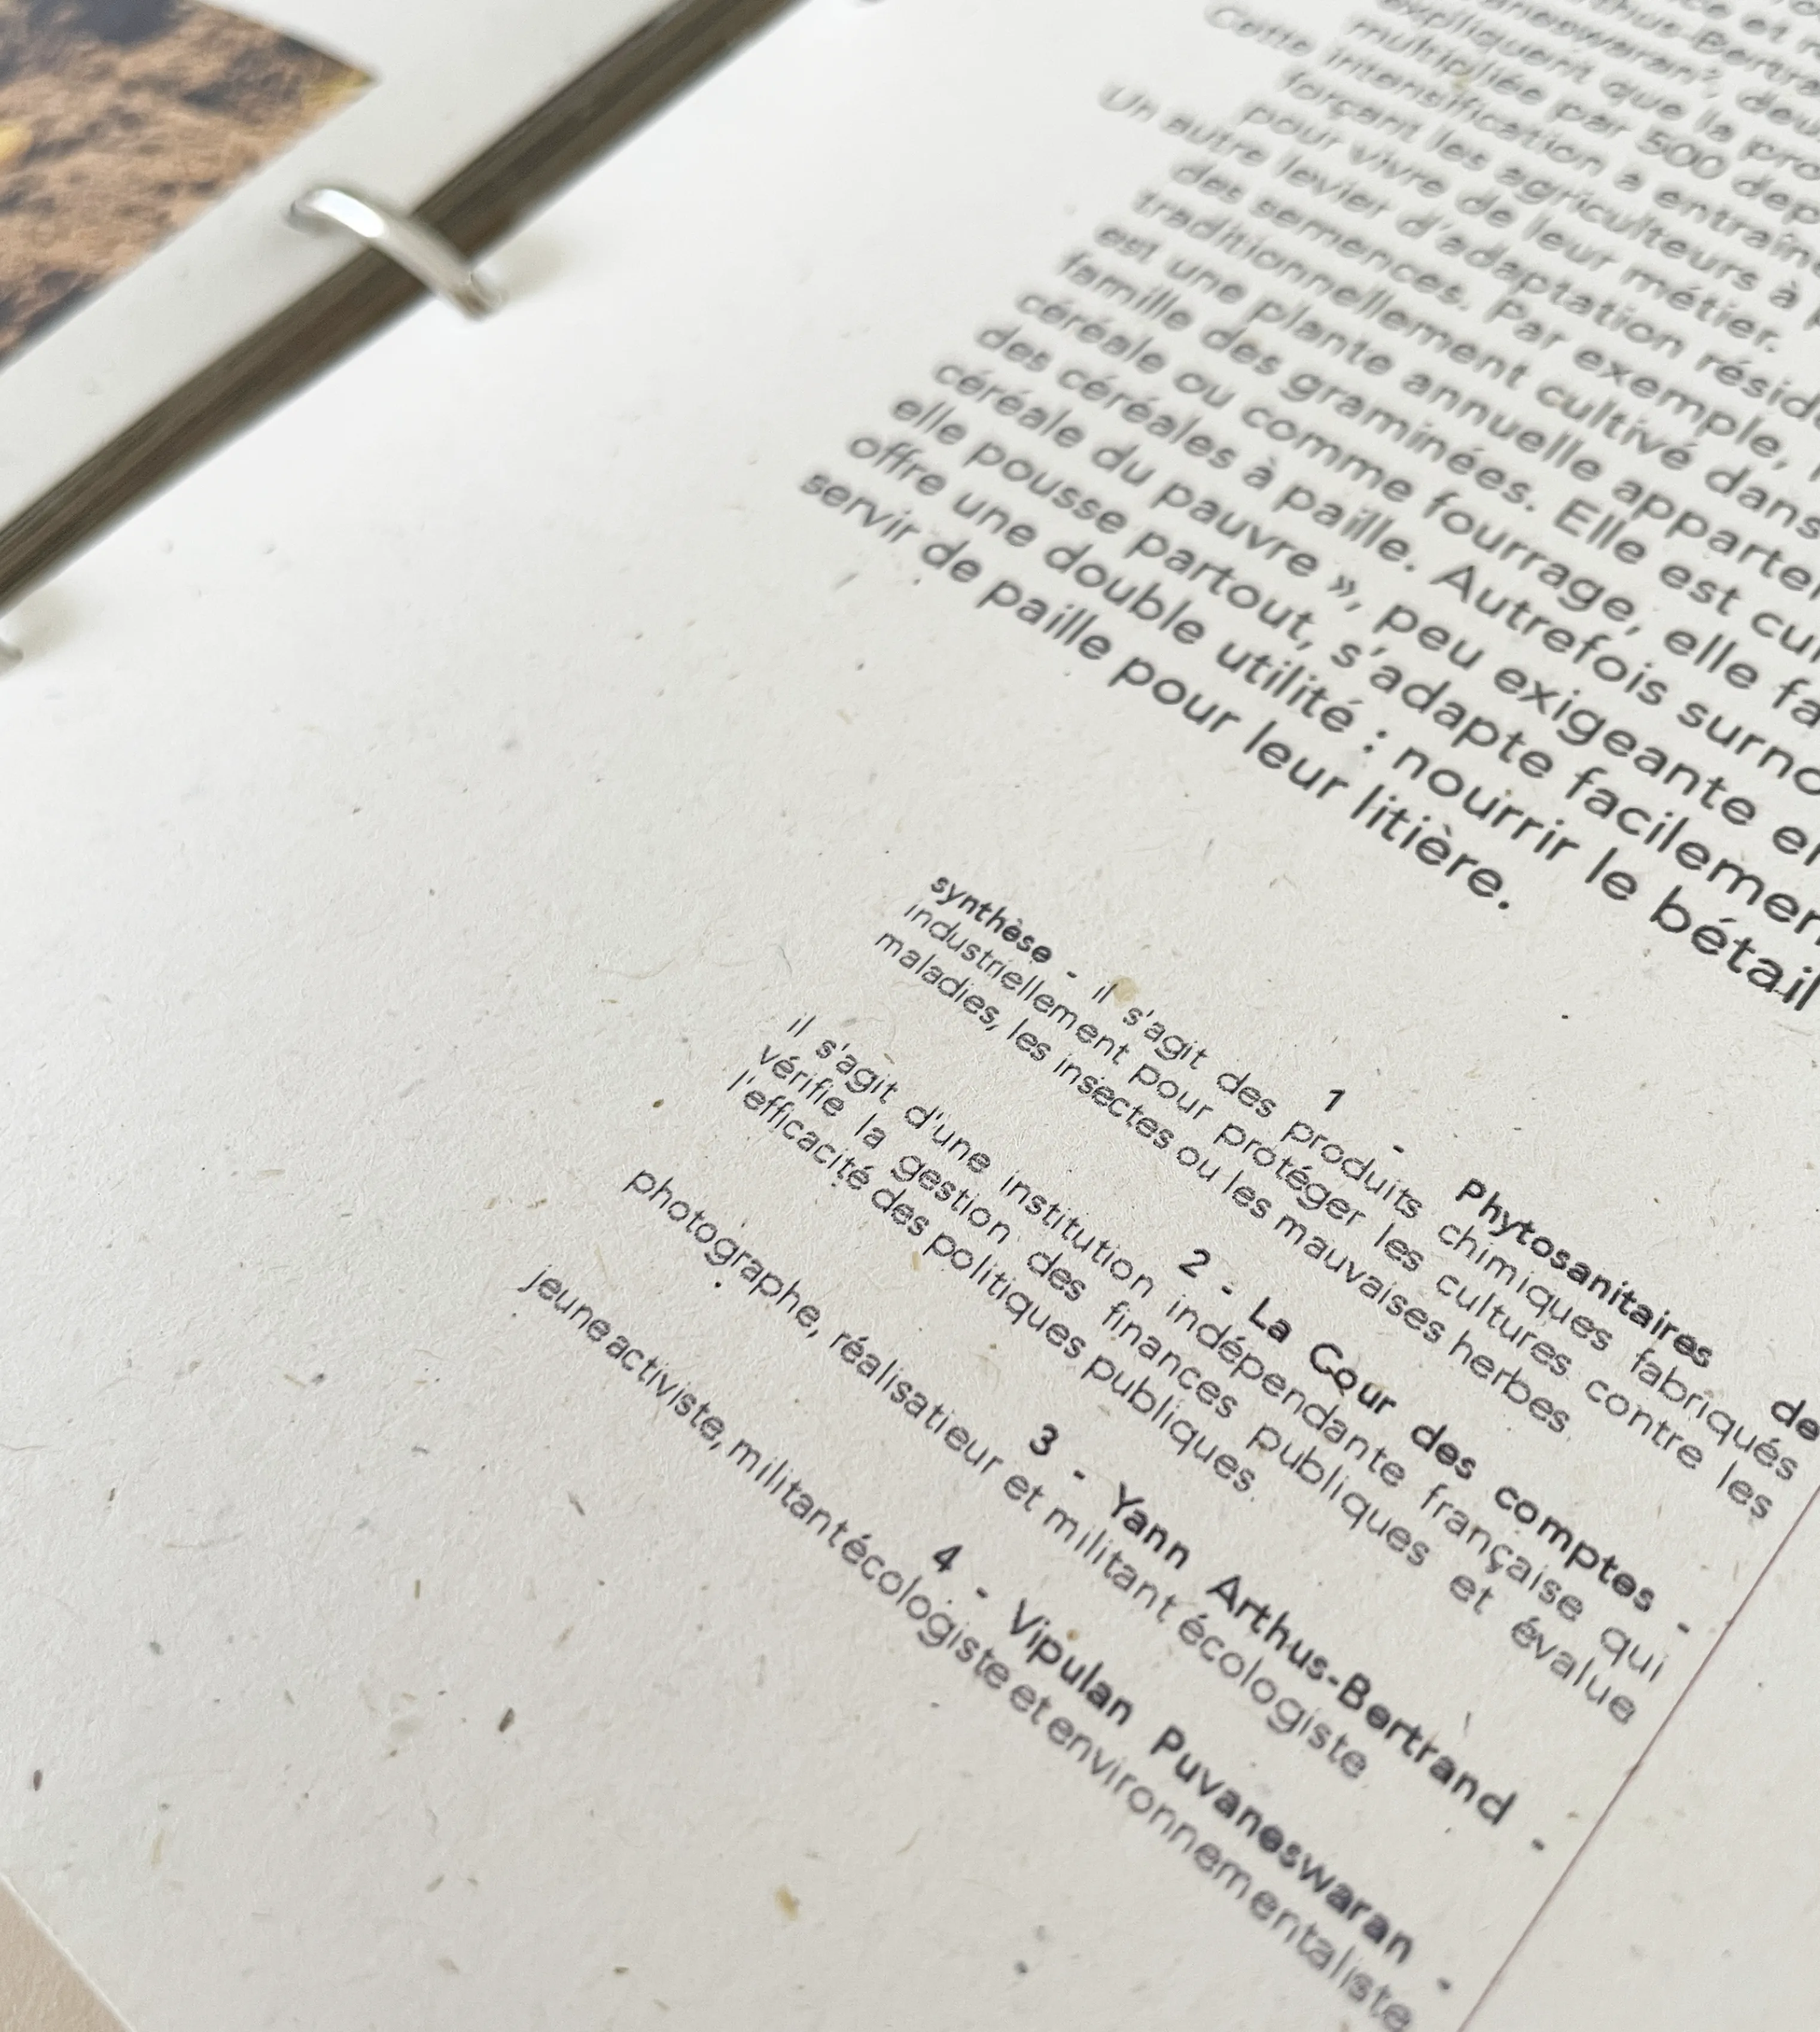 ce et
Arthus-Bertra
aneswaran², deu
expliquent que la pro
multipliée par 500 dep
Cette intensification a entraîn
forçant les agriculteurs à
pour vivre de leur métier.
Un autre levier d'adaptation réside
des semences. Par exemple,
traditionnellement cultivé dans
est une plante annuelle apparte
famille des graminées. Elle est cul
céréale ou comme fourrage, elle fa
des céréales à paille. Autrefois surno
céréale du pauvre », peu exigeante e
elle pousse partout, s'adapte facilemen
offre une double utilité : nourrir le bétail
servir de paille pour leur litière.
1 - Phytosanitaires de
synthèse - il s'agit des produits chimiques fabriqués
industriellement pour protéger les cultures contre les
maladies, les insectes ou les mauvaises herbes.
2 - La Cour des comptes -
il s'agit d'une institution indépendante française qui
vérifie la gestion des finances publiques et évalue
l'efficacité des politiques publiques.
3 - Yann Arthus-Bertrand -
photographe, réalisatieur et militant écologiste
4 - Vipulan Puvaneswaran -
jeune activiste, militant écologiste et environnementaliste